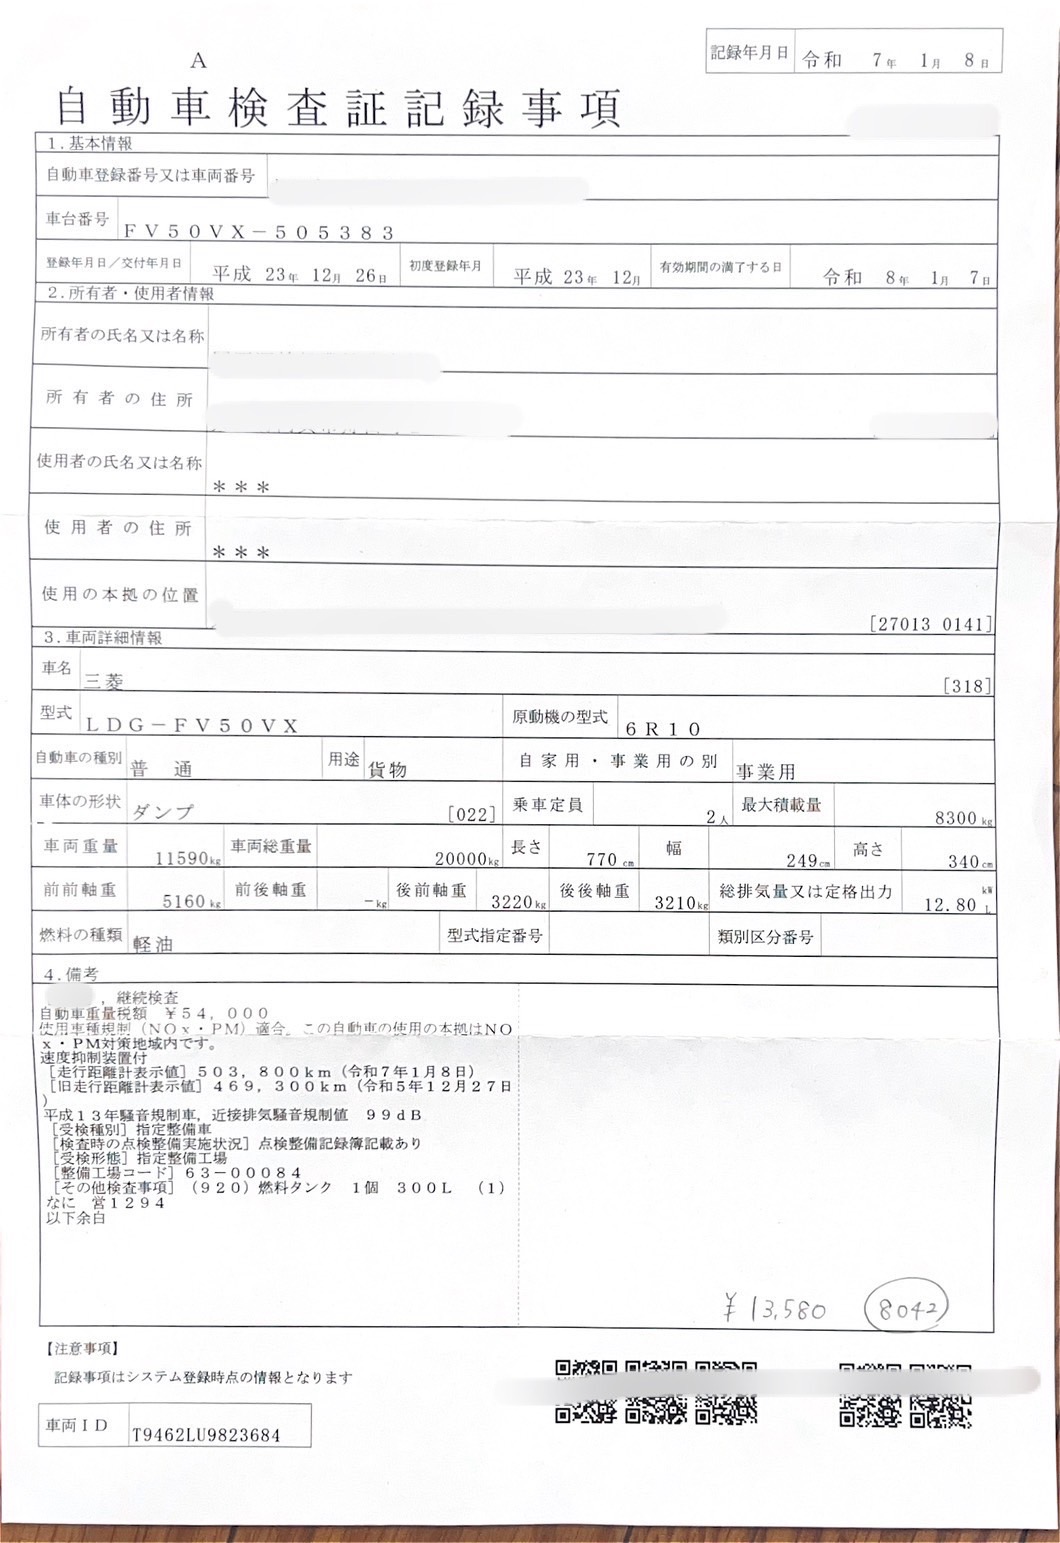 記録年月日 令和 7年 1月 8日
A
自動車検査証記録事項
1.基本情報
自動車登録番号又は車両番号
車台番号 FV50VX-505383
登録年月日/交付年月日 平成 23年 12月 26日 初度登録年月 平成 23年 12月 有効期間の満了する日 令和 8年 1月 7日
2.所有者・使用者情報
所有者の氏名又は名称
所有者の住所
使用者の氏名又は名称 ***
使用者の住所 ***
使用の本拠の位置 [27013 0141]
3.車両詳細情報
車名 三菱 [318]
型式 LDG-FV50VX 原動機の型式 6R10
自動車の種別 普通 用途 貨物 自家用・事業用の別 事業用
車体の形状 ダンプ [022] 乗車定員 2人 最大積載量 8300kg
車両重量 11590kg 車両総重量 20000kg 長さ 770cm 幅 249cm 高さ 340cm
前前軸重 5160kg 前後軸重 -kg 後前軸重 3220kg 後後軸重 3210kg 総排気量又は定格出力 12.80 kW L
燃料の種類 軽油 型式指定番号 類別区分番号
4.備考
,継続検査
自動車重量税額 ¥54,000
使用車種規制(NOx・PM)適合。この自動車の使用の本拠はNO
x・PM対策地域内です。
速度抑制装置付
[走行距離計表示値]503,800km(令和7年1月8日)
[旧走行距離計表示値]469,300km(令和5年12月27日
)
平成13年騒音規制車,近接排気騒音規制値 99dB
[受検種別]指定整備車
[検査時の点検整備実施状況]点検整備記録簿記載あり
[受検形態]指定整備工場
[整備工場コード]63-00084
[その他検査事項](920)燃料タンク 1個 300L (1)
なに 営1294
以下余白
¥13,580 8042
【注意事項】
記録事項はシステム登録時点の情報となります
車両ID T9462LU9823684